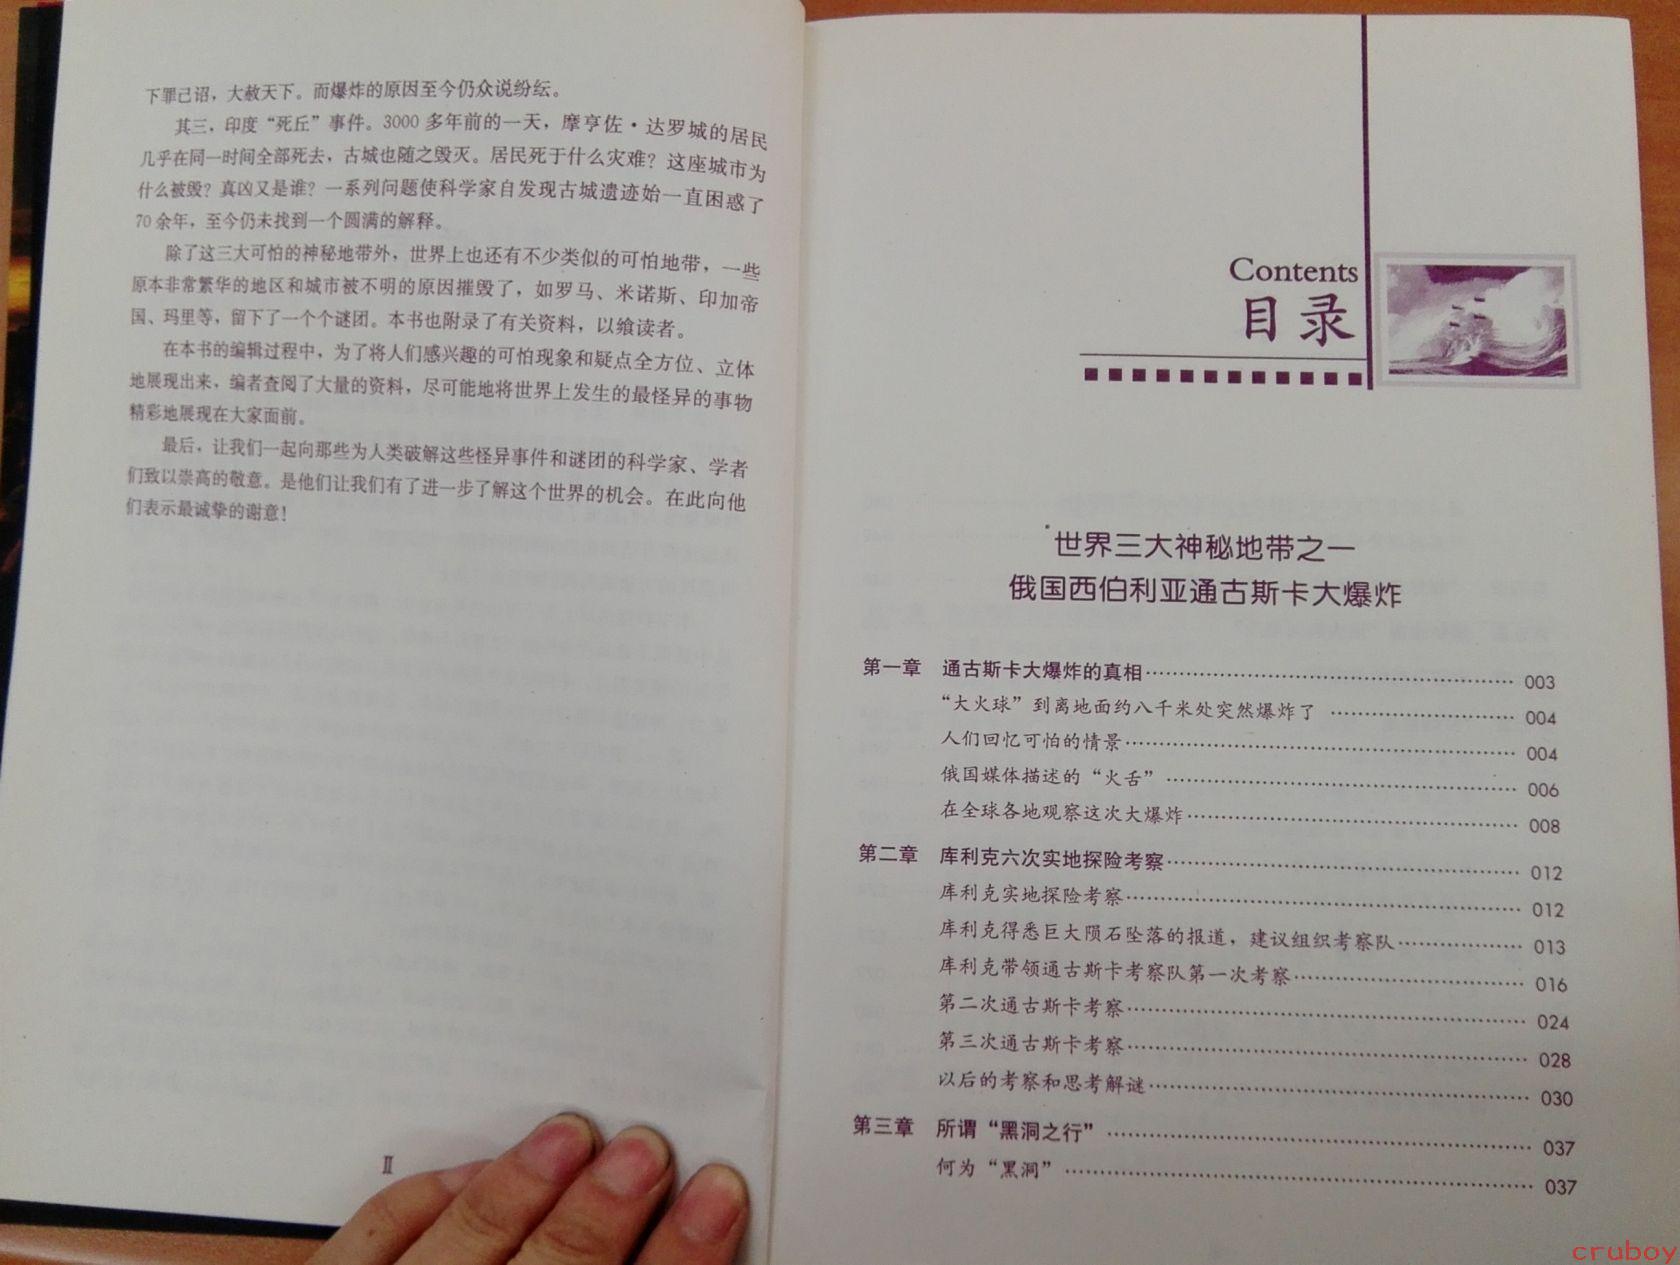 下罪己诏，大赦天下。而爆炸的原因至今仍众说纷纭。
其三，印度“死丘”事件。3000 多年前的一天，摩亨佐·达罗城的居民
几乎在同一时间全部死去，古城也随之毁灭。居民死于什么灾难？这座城市为
什么被毁？真凶又是谁？一系列问题使科学家自发现古城遗迹始一直困惑了
70 余年，至今仍未找到一个圆满的解释。
除了这三大可怕的神秘地带外，世界上也还有不少类似的可怕地带，一些
原本非常繁华的地区和城市被不明的原因摧毁了，如罗马、米诺斯、印加帝
国、玛里等，留下了一个个谜团。本书也附录了有关资料，以飨读者。
在本书的编辑过程中，为了将人们感兴趣的可怕现象和疑点全方位、立体
地展现出来，编者查阅了大量的资料，尽可能地将世界上发生的最怪异的事物
精彩地展现在大家面前。
最后，让我们一起向那些为人类破解这些怪异事件和谜团的科学家、学者
们致以崇高的敬意。是他们让我们有了进一步了解这个世界的机会。在此向他
们表示最诚挚的谢意！
Ⅱ
Contents
目录
世界三大神秘地带之一
俄国西伯利亚通古斯卡大爆炸
第一章 通古斯卡大爆炸的真相 003
“大火球”到离地面约八千米处突然爆炸了 004
人们回忆可怕的情景 004
俄国媒体描述的“火舌” 006
在全球各地观察这次大爆炸 008
第二章 库利克六次实地探险考察 012
库利克实地探险考察 012
库利克得悉巨大陨石坠落的报道，建议组织考察队 013
库利克带领通古斯卡考察队第一次考察 016
第二次通古斯卡考察 024
第三次通古斯卡考察 028
以后的考察和思考解谜 030
第三章 所谓“黑洞之行” 037
何为“黑洞” 037
cruboy